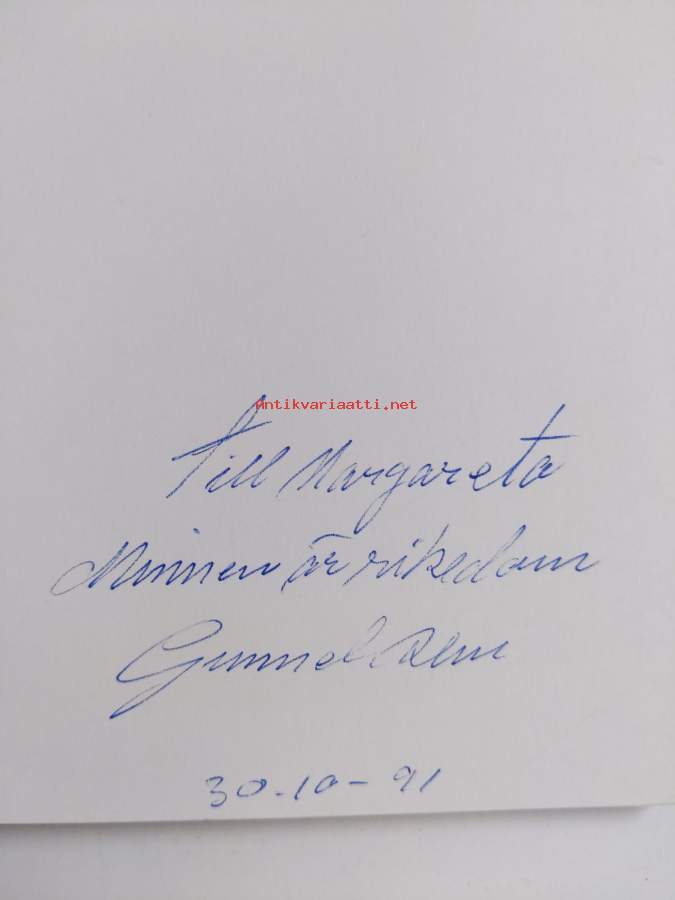 Antikvariaatti.net
Till Margareta
Minnen är rikedom
Gunnel
30.10-91